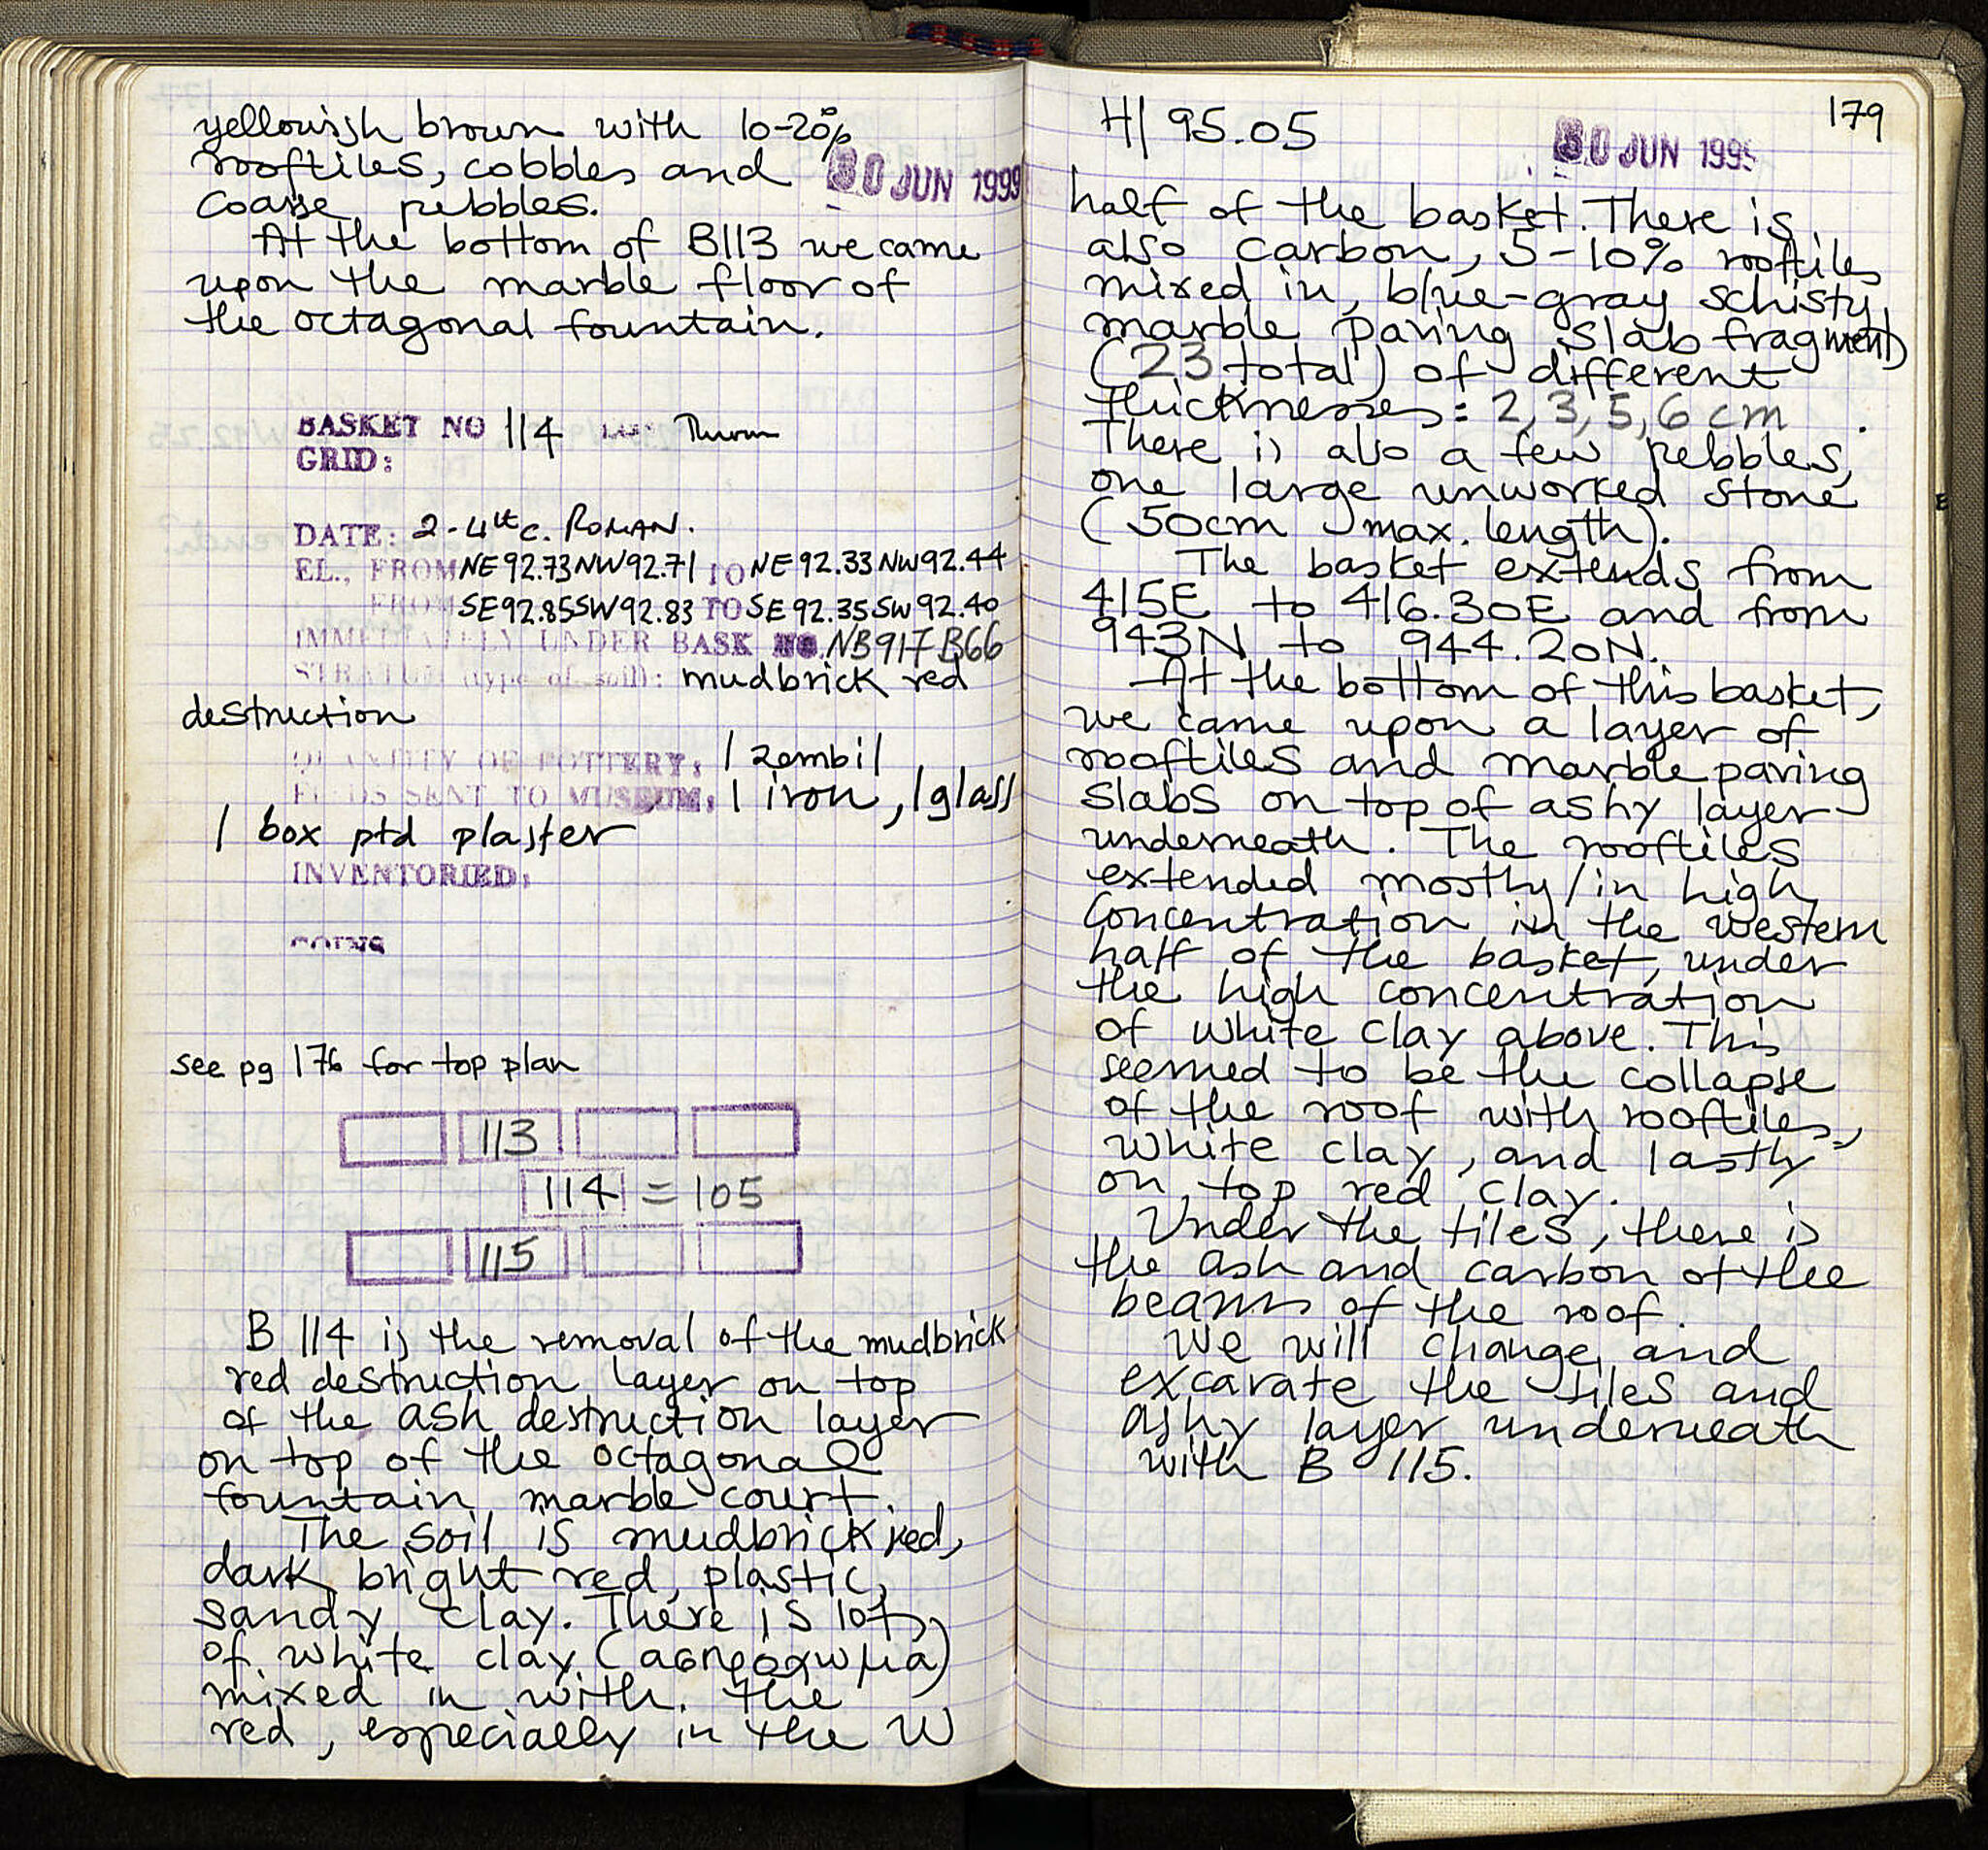 yellowish brown with 10-20%
rooftiles, cobbles and
30 JUN 1999
coarse pebbles.
At the bottom of B113 we came
upon the marble floor of
the octagonal fountain.
BASKET NO 114
GRID:
DATE: 2-4th c. ROMAN.
EL., FROM NE 92.73 NW 92.71 TO NE 92.33 NW 92.44
FROM SE 92.85 SW 92.83 TO SE 92.35 SW 92.40
IMMEDIATELY UNDER BASK NO. NB917 B66
STRATUM (type of soil): mudbrick red
destruction
QUANTITY OF POTTERY: 1 zembil
FINDS SENT TO MUSEUM: 1 iron, 1 glass
1 box ptd plaster
INVENTORIED:
COINS
see pg 176 for top plan
113
114 = 105
115
B 114 is the removal of the mudbrick
red destruction layer on top
of the ash destruction layer
on top of the octagonal
fountain marble court.
The soil is mudbrick red,
dark bright red, plastic,
sandy clay. There is lots
of white clay (ασπροχωμα)
mixed in with the
red, especially in the W
H/ 95.05
30 JUN 1999
179
half of the basket. There is
also carbon, 5-10% rooftiles
mixed in, blue-gray schisty
marble paving slab fragments
(23 total) of different
thicknesses: 2, 3, 5, 6 cm.
There is also a few pebbles,
one large unworked stone
(50cm max. length).
The basket extends from
415E to 416.30E and from
943N to 944.20N.
At the bottom of this basket,
we came upon a layer of
rooftiles and marble paving
slabs on top of ashy layer
underneath. The rooftiles
extended mostly/in high
concentration in the western
half of the basket, under
the high concentration
of white clay above. This
seemed to be the collapse
of the roof with rooftiles,
white clay, and lastly
on top red clay.
Under the tiles, there is
the ash and carbon of the
beams of the roof.
We will change and
excavate the tiles and
ashy layer underneath
with B 115.